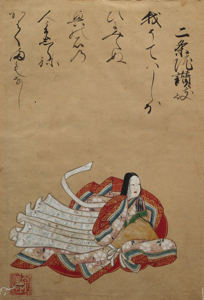 二条院讃岐
我そてハしほ
ひにみえぬ
沖の石の
人こそしらね
かはくまもなし